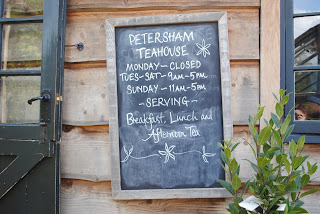 PETERSHAM
TEAHOUSE
MONDAY - CLOSED
TUES-SAT- 9AM-5PM
SUNDAY - 11AM-5PM
- SERVING -
Breakfast, Lunch and
Afternoon Tea